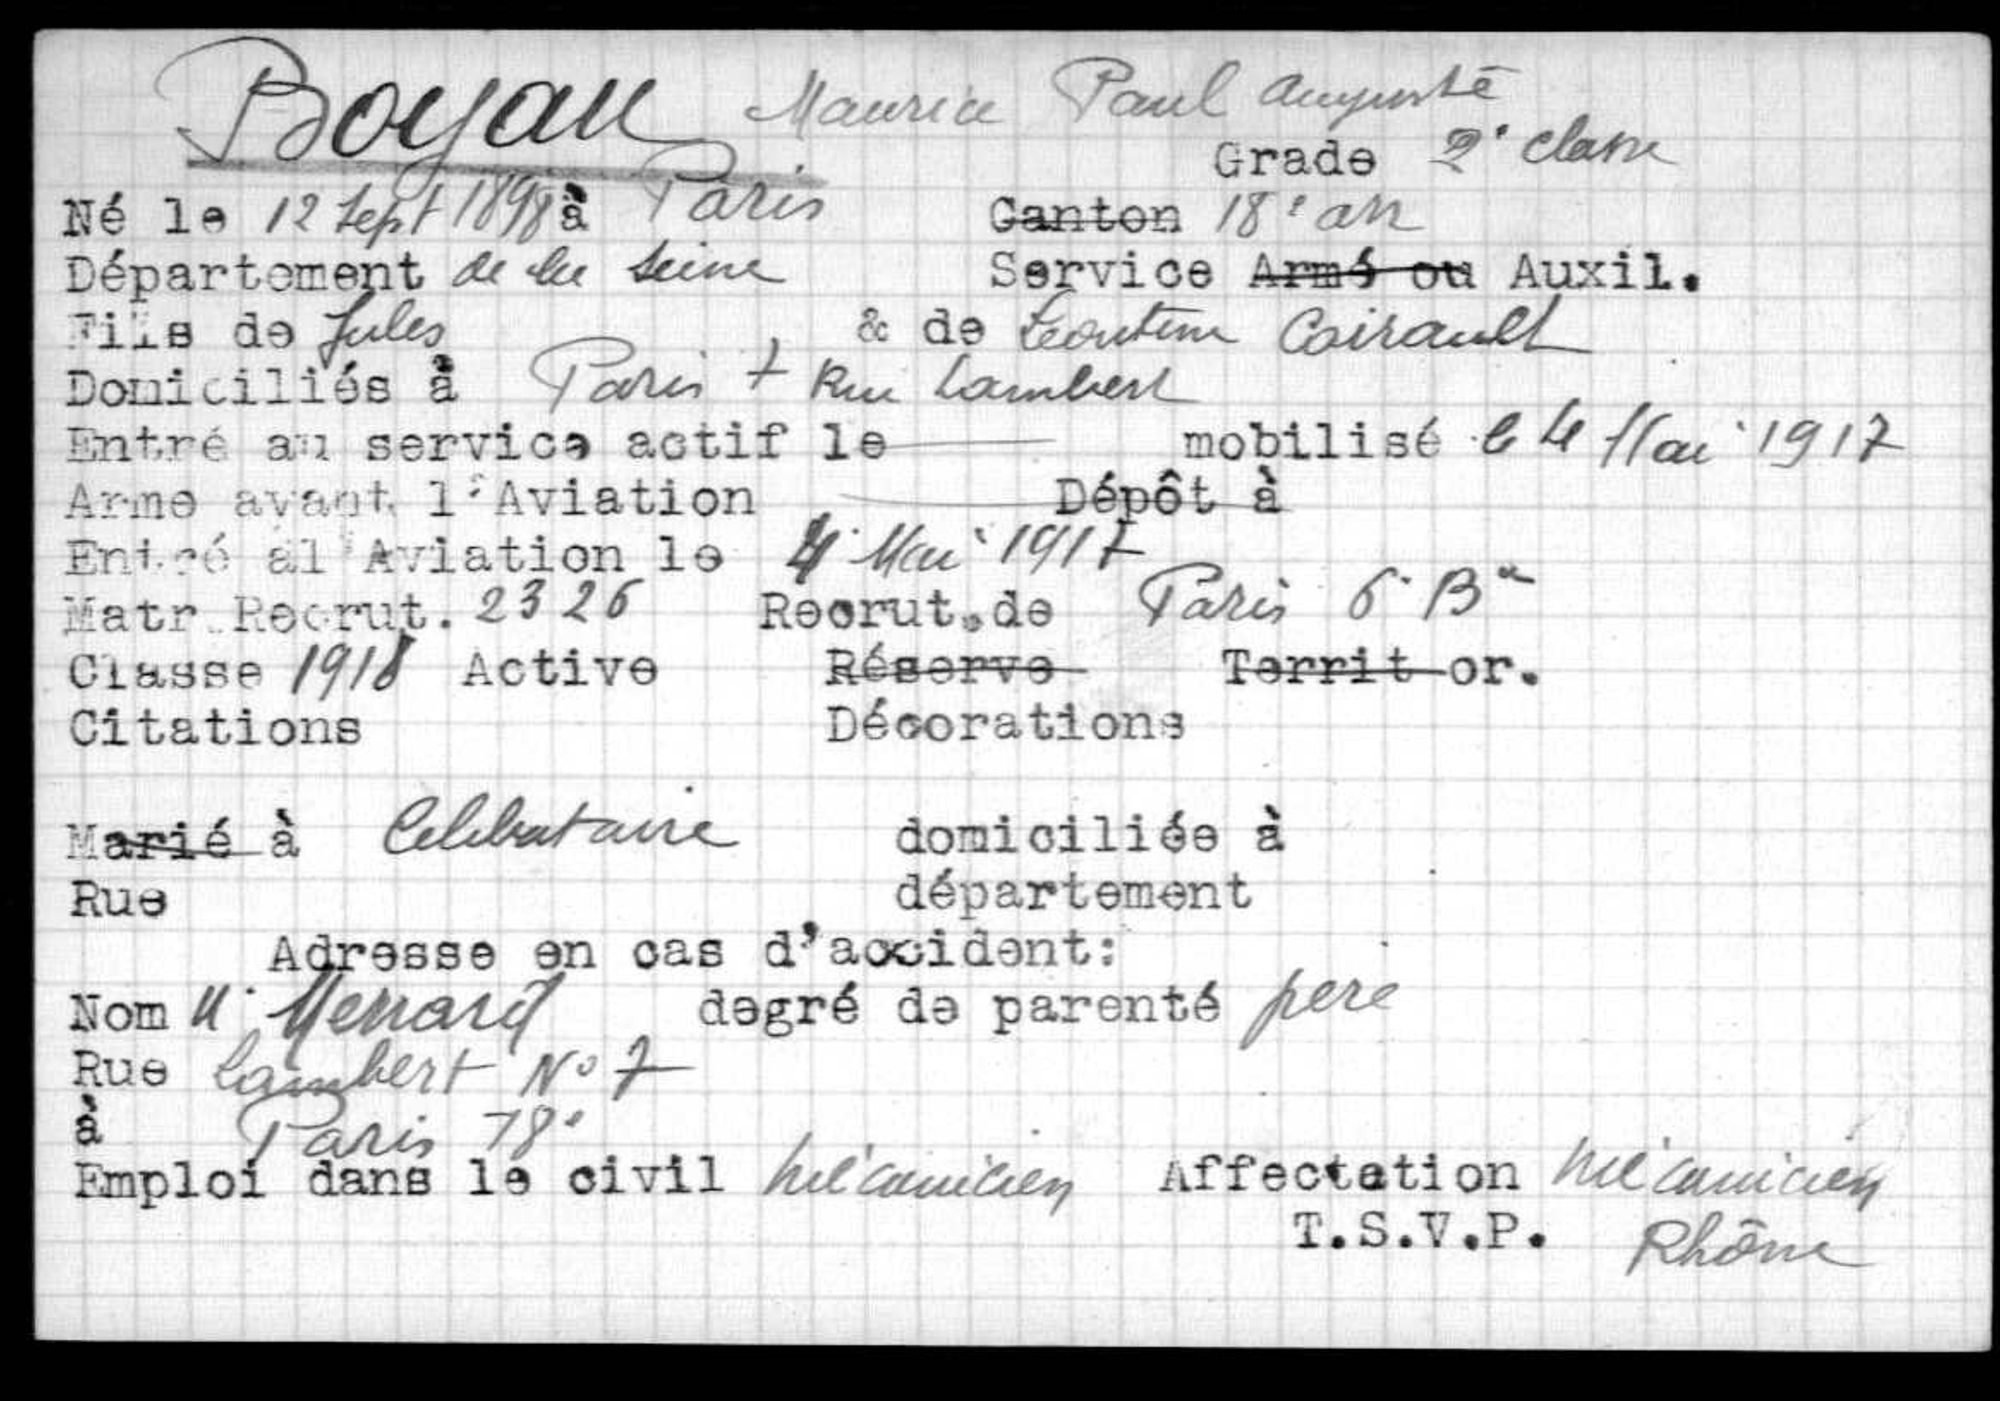 Boyau Maurice Paul Auguste
Grade 2e classe
Né le 12 Sept 1898 à Paris Canton 18e arr
Département de la Seine Service Armé ou Auxil.
Fils de Jules & de Léontine Cairault
Domiciliés à Paris 7 Rue Lambert
Entré au service actif le mobilisé le 4 Mai 1917
Arme avant l'Aviation Dépôt à
Entré al'Aviation le 4 Mai 1917
Matr.Recrut. 2326 Recrut.de Paris 6e Bau
Classe 1918 Active Réserve Territ or.
Citations Décorations
Marié à Celibataire domiciliée à
Rue département
Adresse en cas d'accident:
Nom Mr degré de parenté pere
Rue Lambert No 7
à Paris 18e
Emploi dans le civil Mécanicien Affectation Mécanicien
T.S.V.P. Rhône